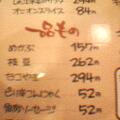 オニオンスライス 84円
一品もの
めかぶ 157円
枝豆 262円
たこやき 294円
52円
魚肉ソーセージ 52円